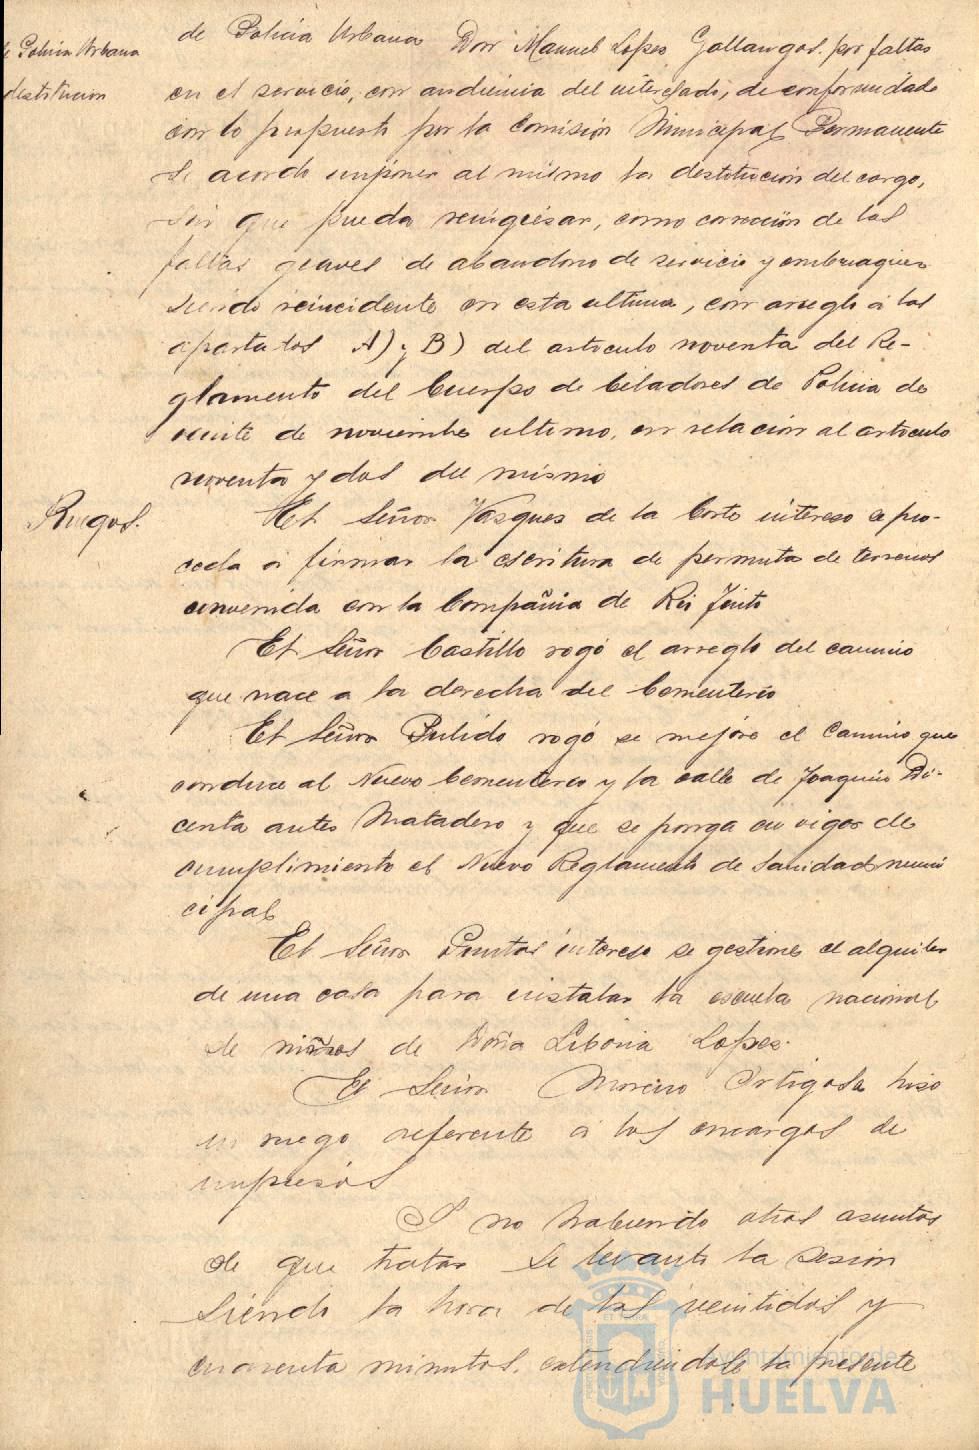 de Policia Urbana
destitucion
de Policia Urbana Don Manuel Lopez Gallangos. por faltas
en el servicio, con audiencia del interesado, de conformidad
con lo propuesto por la Comisión Municipal Permanente
se acordo imponer al mismo la destitucion del cargo,
sin que pueda reingresar, como correccion de las
faltas graves de abandono de servicio y embriaguez
siendo reincidente en esta ultima, con arreglo á los
apartados A) y B) del articulo noventa del Re-
glamento del Cuerpo de Celadores de Policia de
veinte de noviembre ultimo, en relacion al articulo
noventa y dos del mismo
Ruegos.
El Señor Vasques de la Corte intereso se pro-
ceda a firmar la escritura de permuta de terrenos
convenida con la Compañia de Rio Tinto
El Señor Castillo rogó el arreglo del camino
que nace a la derecha del Cementerio
El Señor Pulido rogó se mejore el camino que
conduce al Nuevo Cementerio y la calle de Joaquin Di-
centa antes Matadero y que se ponga en vigor de
cumplimiento el Nuevo Reglamento de Sanidad muni
cipal
El Señor Pontes intereso se gestione el alquiler
de una casa para instalar la escuela nacional
de niños de Doña Liboria Lopez.
El Señor Moreno Ortigosa hizo
un ruego referente a los encargos de
impresos
Y no habiendo otros asuntos
de que tratar se levantó la sesion
siendo la hora de las veintidos y
cuarenta minutos. extendiendose la presente
Ayuntamiento de
HUELVA